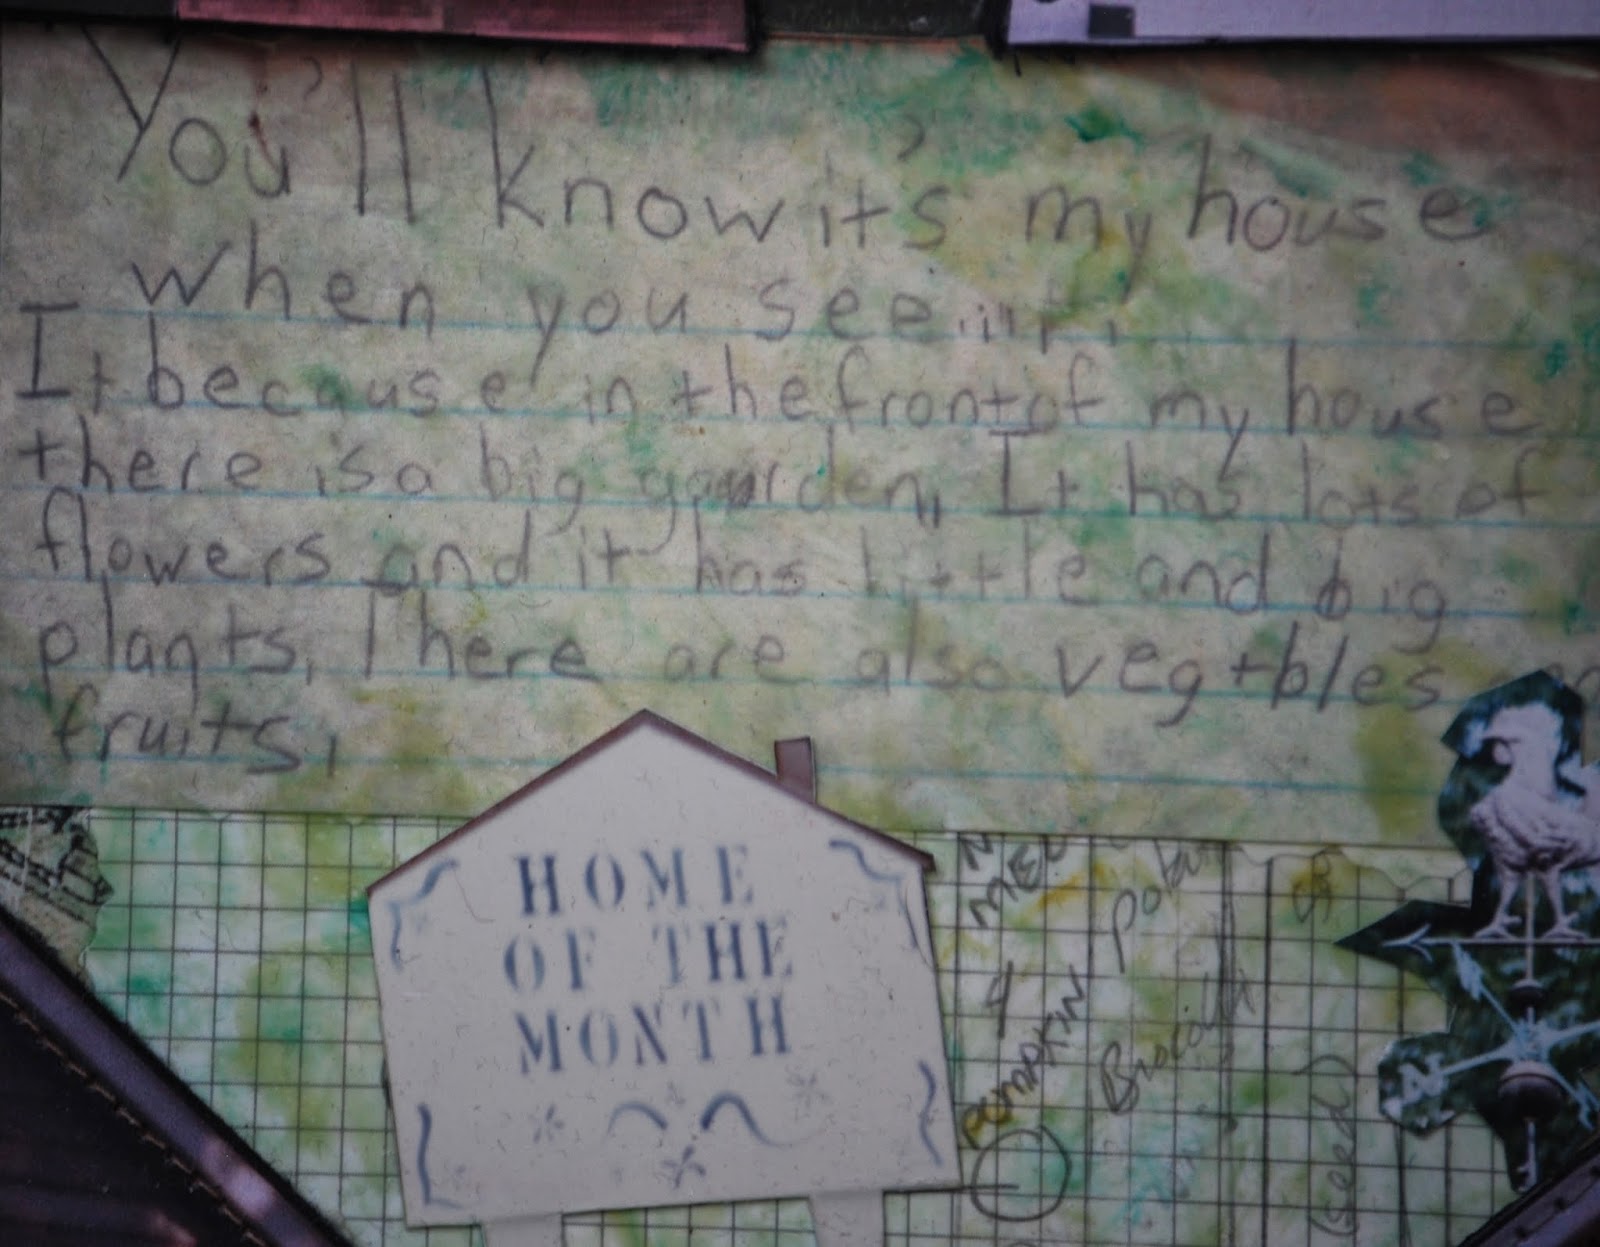 You'll know it's my house
when you see
It because in the front of my house
there is a big garden. It has lots of
flowers and it has little and big
plants. There are also vegtbles
fruits.
HOME
OF THE
MONTH
PUMPKIN
(seed)
N